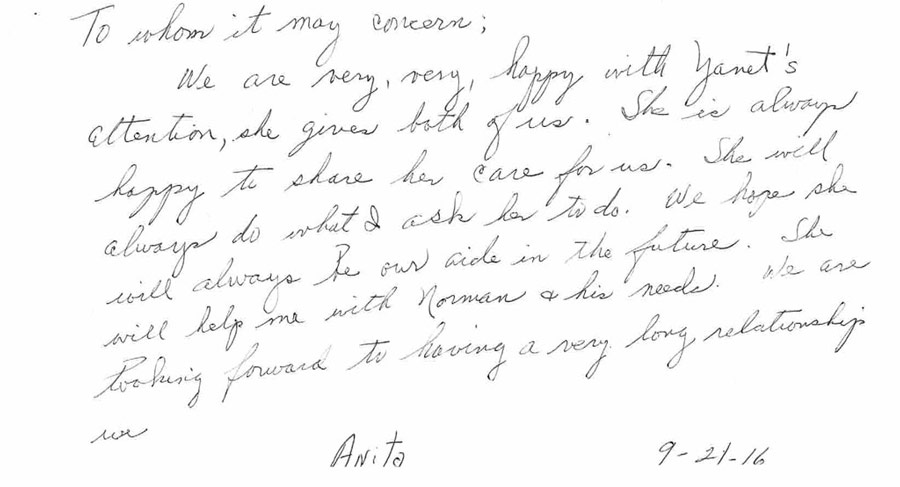 To whom it may concern;
We are very, very, happy with Yanet's
attention, she gives both of us. She is always
happy to share her care for us. She will
always do what I ask her to do. We hope she
will always be our aide in the future. She
will help me with Norman & his needs. We are
looking forward to having a very long relationship
we
Anita 9-21-16